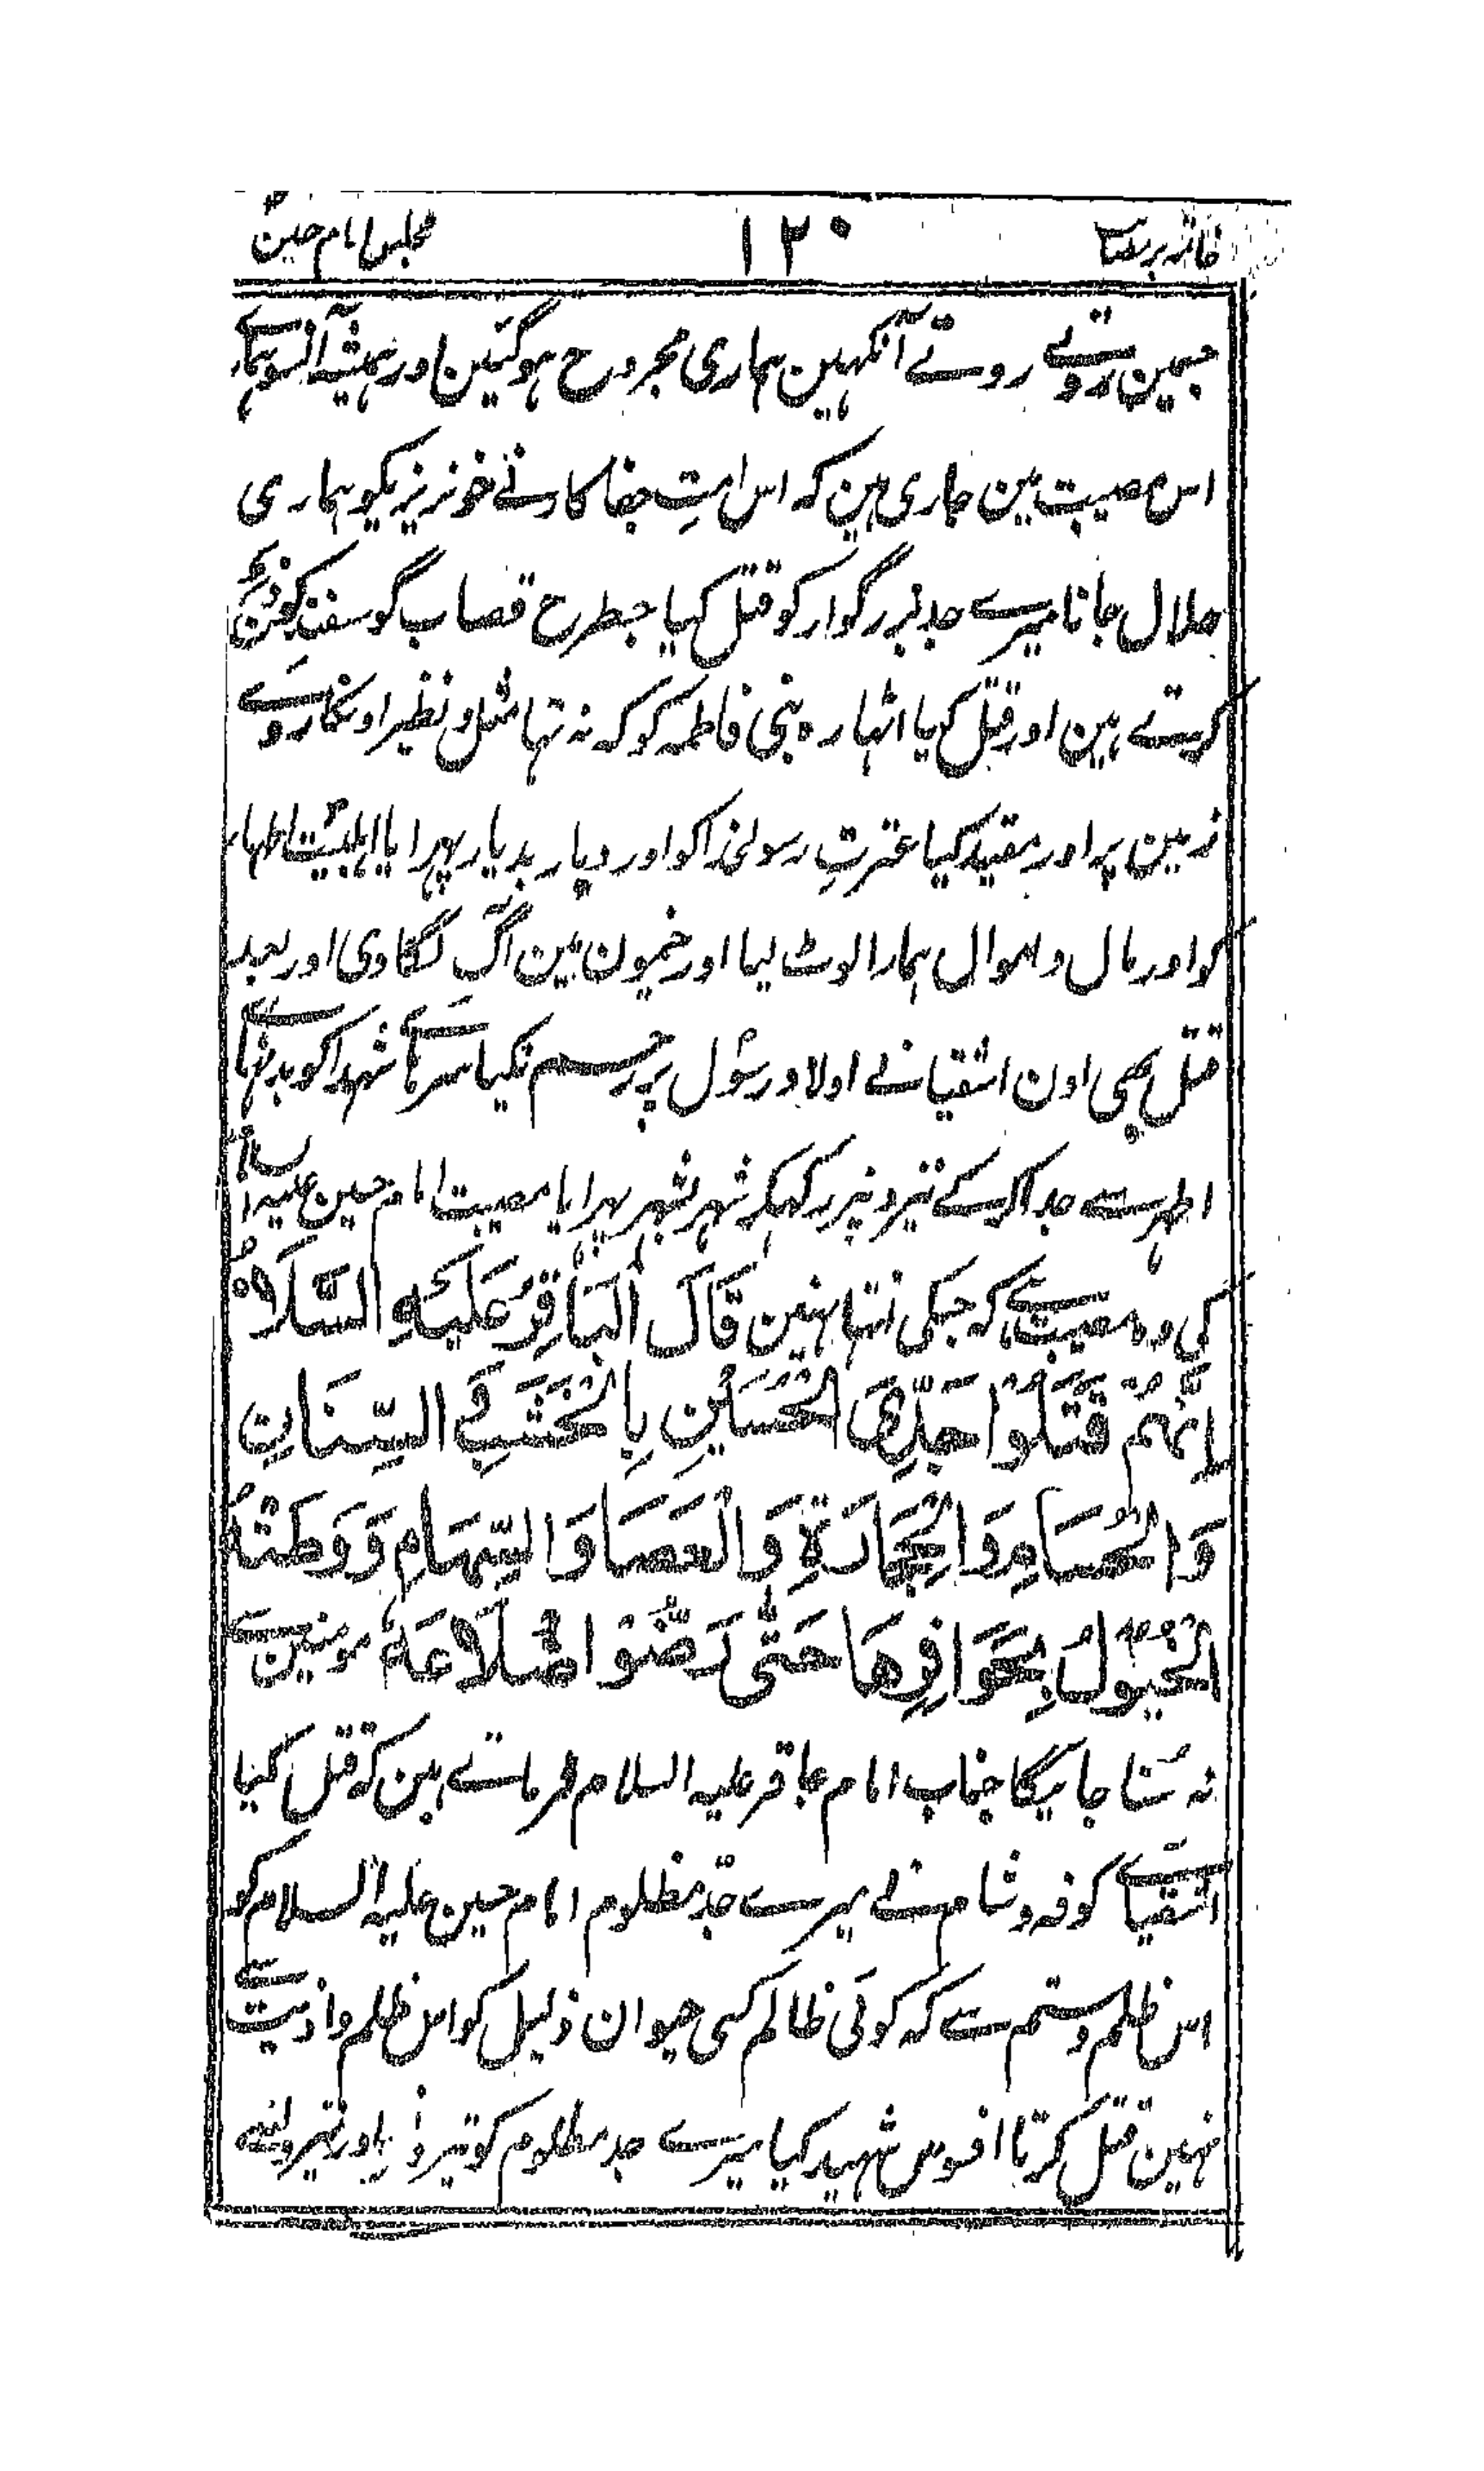 مجلس امام حسینؑ ۱۲۰
جسمین روتے روتے آنکہین ہماری مجروح ہوگئین اور ہمیشہ آنسو ہمارے
اس مصیبت مین جاری ہین کہ اس امتِ جفاکار نے خونریزیکو ہماری
حلال جانا میرے جد بزرگوار کو قتل کیا جسطرح قصاب گوسفند کو ذبح
کرتے ہین اور قتل کیا اٹہارہ بنی فاطمہ کو کہ نہ تہا مثل و نظیر اونکا روے
زمین پر اور مقید کیا عترتِ رسولخدا کو اور دیار بدیار پہرایا اہلبیتؑ اطہار
کو اور مال و اموال ہمارا لوٹ لیا اور خیمون مین آگ لگادی اور بعد
قتل بھی اون اشقیا نے اولاد رسولؐ پر رحم نکیا سرہائے شہدا کو بدنہائے
اطہر سے جدا کرکے نیزونپر رکہکر شہر بشہر پہرایا مصیبت امام حسین علیہ السلام
کی وہ مصیبت ہے کہ جسکی انتہا نہین قَالَ الْبَاقِرُ عَلَیْهِ السَّلَامُ
اِنَّهُمْ قَتَلُوْا جَدِّیَ الْحُسَیْنِ بِالْخَشَبِ فِی السِّنَانِ
وَ الْحُسَامِ وَ الْحِجَارَةِ وَ الْعَصَا وَ السِّهَامِ وَ وَطَئَتْهُ
الْخُیُوْلُ بِحَوَافِرِهَا حَتّٰی رَضُّوْا اَضْلَاعَهٗ مومنین سے
نہ سُنا جائیگا جناب امام باقر علیہ السلام فرماتے ہین کہ قتل کیا
اشقیائے کوفہ و شام نے میرے جدِّ مظلوم امام حسین علیہ السلام کو
اس ظلم و ستم سے کہ کوئی ظالم کسی حیوان ذلیل کو اس ظلم و اذیت سے
نہین قتل کرتا افسوس شہید کیا میرے جد مظلوم کو تیر و اور نیرو نسے